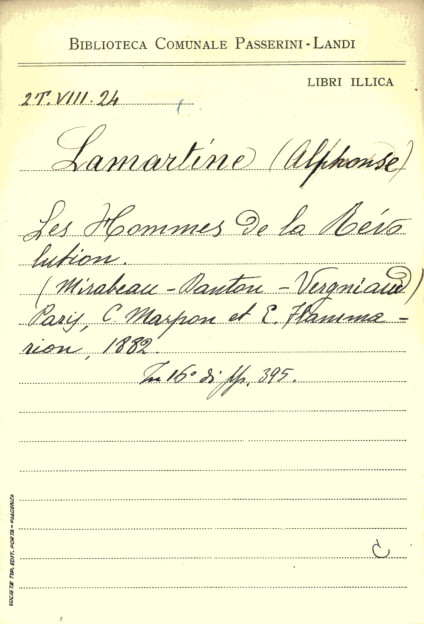 BIBLIOTECA COMUNALE PASSERINI-LANDI
LIBRI ILLICA
2T.VIII.24
Lamartine (Alphonse)
Les Hommes de la Révo
lution.
(Mirabeau - Danton - Vergniaud)
Paris, C. Marpon et E. Flamma-
rion, 1882.
In 16° di pp. 395.
C
SOCIETÀ TIP. EDIT. PORTA - PIACENZA